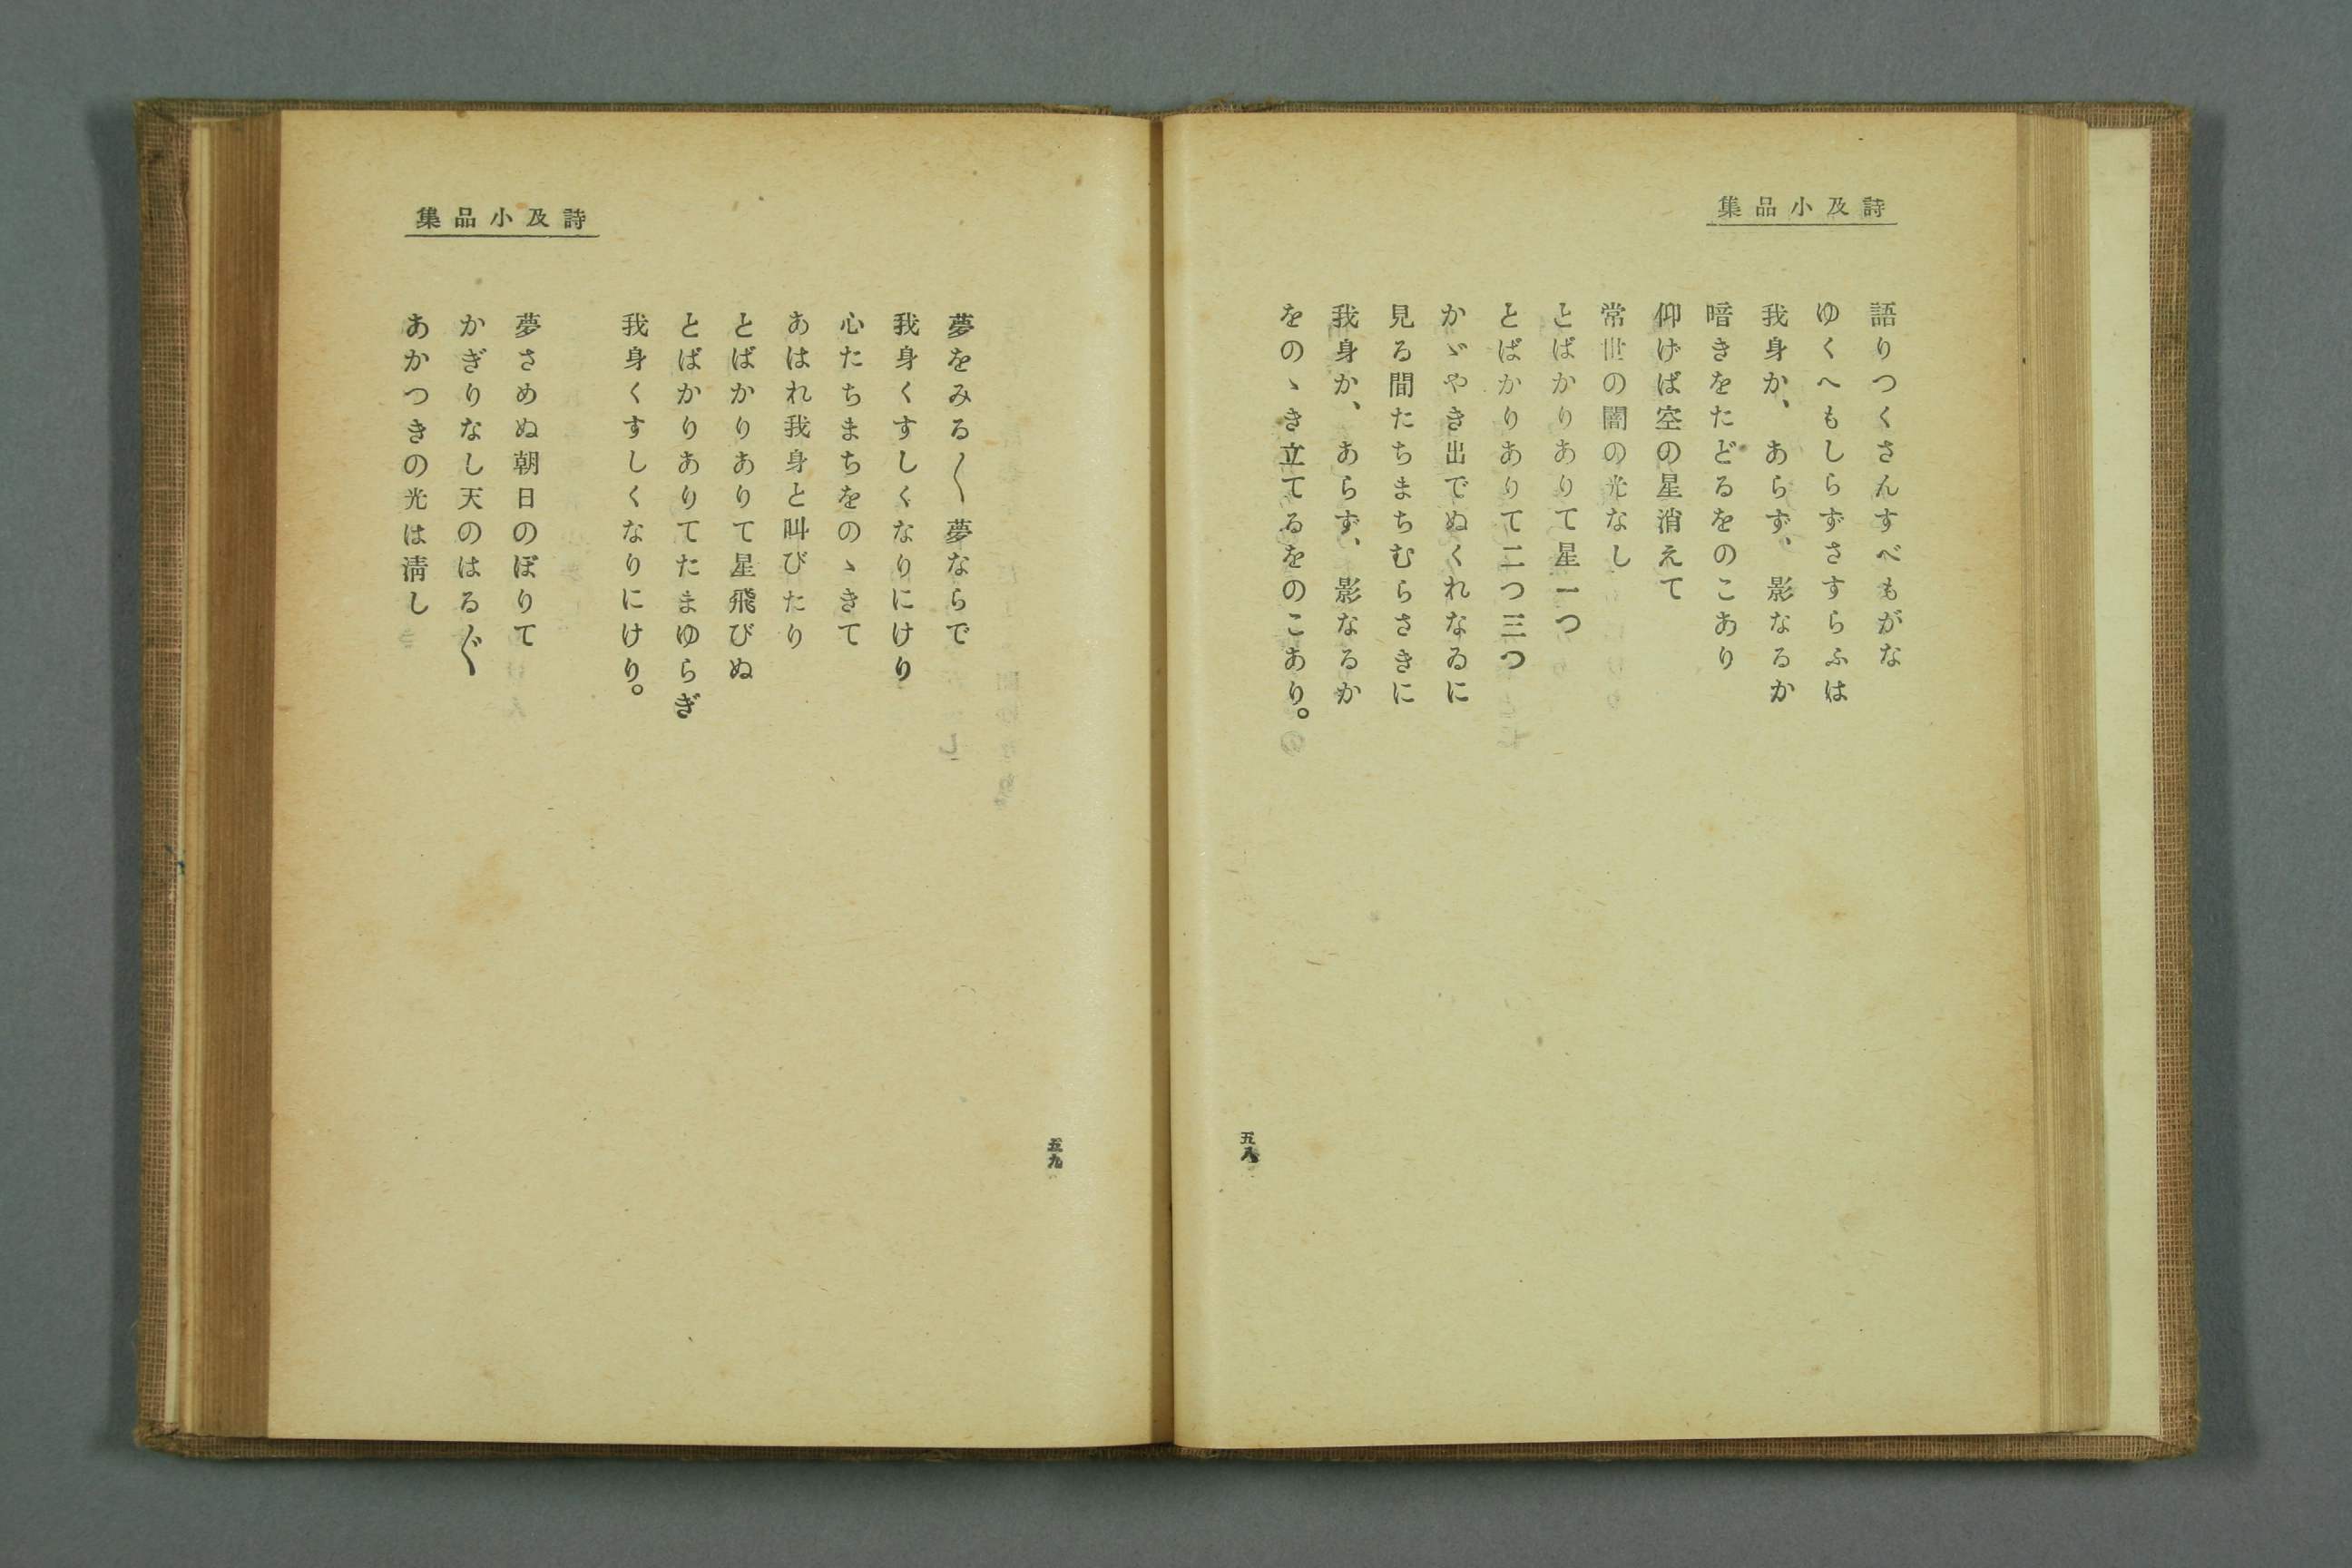 詩及小品集
語りつくさんすべもがな
ゆくへもしらずさすらふは
我身か、あらず、影なるか
暗きをたどるをのこあり
仰げば空の星消えて
常世の闇の光なし
とばかりありて星一つ
とばかりありて二つ三つ
かゞやき出でぬくれなゐに
見る間たちまちむらさきに
我身か、あらず、影なるか
をのゝき立てるをのこあり。
五八
詩及小品集
夢をみる〱夢ならで
我身くすしくなりにけり
心たちまちをのゝきて
あはれ我身と叫びたり
とばかりありて星飛びぬ
とばかりありてたまゆらぎ
我身くすしくなりにけり。
夢さめぬ朝日のぼりて
かぎりなし天のはる〲
あかつきの光は清し
五九